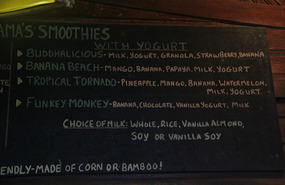 AMA'S SMOOTHIES
WITH YOGURT
BUDDHALICIOUS - MILK, YOGURT, GRANOLA, STRAWBERRY, BANANA
BANANA BEACH - MANGO, BANANA, PAPAYA, MILK, YOGURT
TROPICAL TORNADO - PINEAPPLE, MANGO, BANANA, WATERMELON,
MILK, YOGURT
FUNKEY MONKEY - BANANA, CHOCOLATE, VANILLA YOGURT, MILK
CHOICE OF MILK: WHOLE, RICE, VANILLA ALMOND,
SOY OR VANILLA SOY
ENDLY-MADE OF CORN OR BAMBOO!